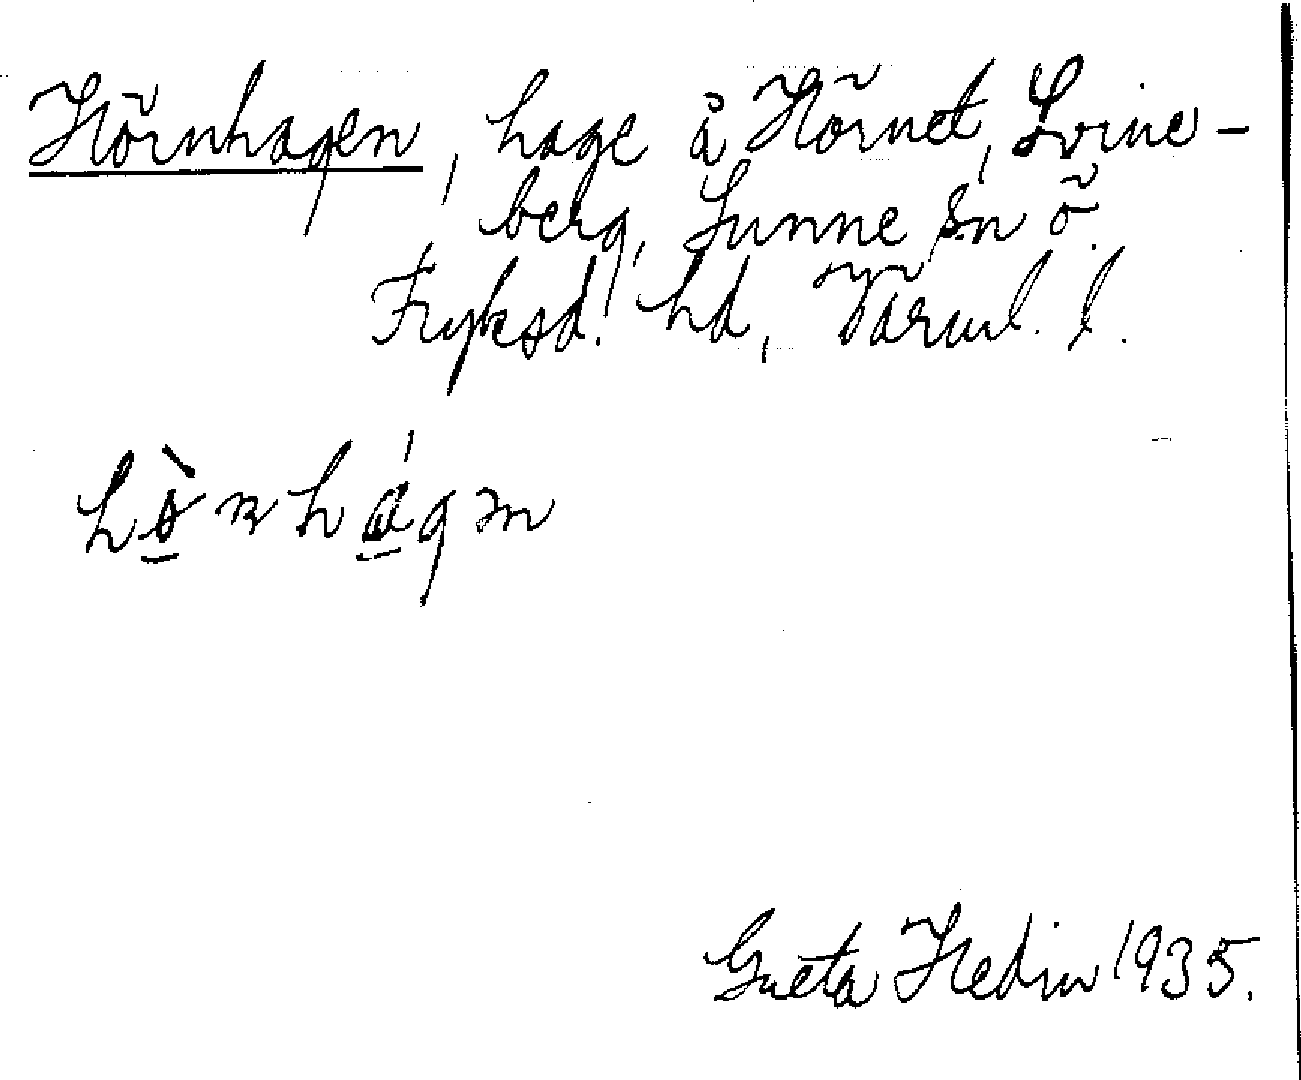 Hörnhagen, hage å Hörnet, Svine-
berg, Sunne sn ö
Fryksd. hd, Värml. l.
Greta Hedin 1935.